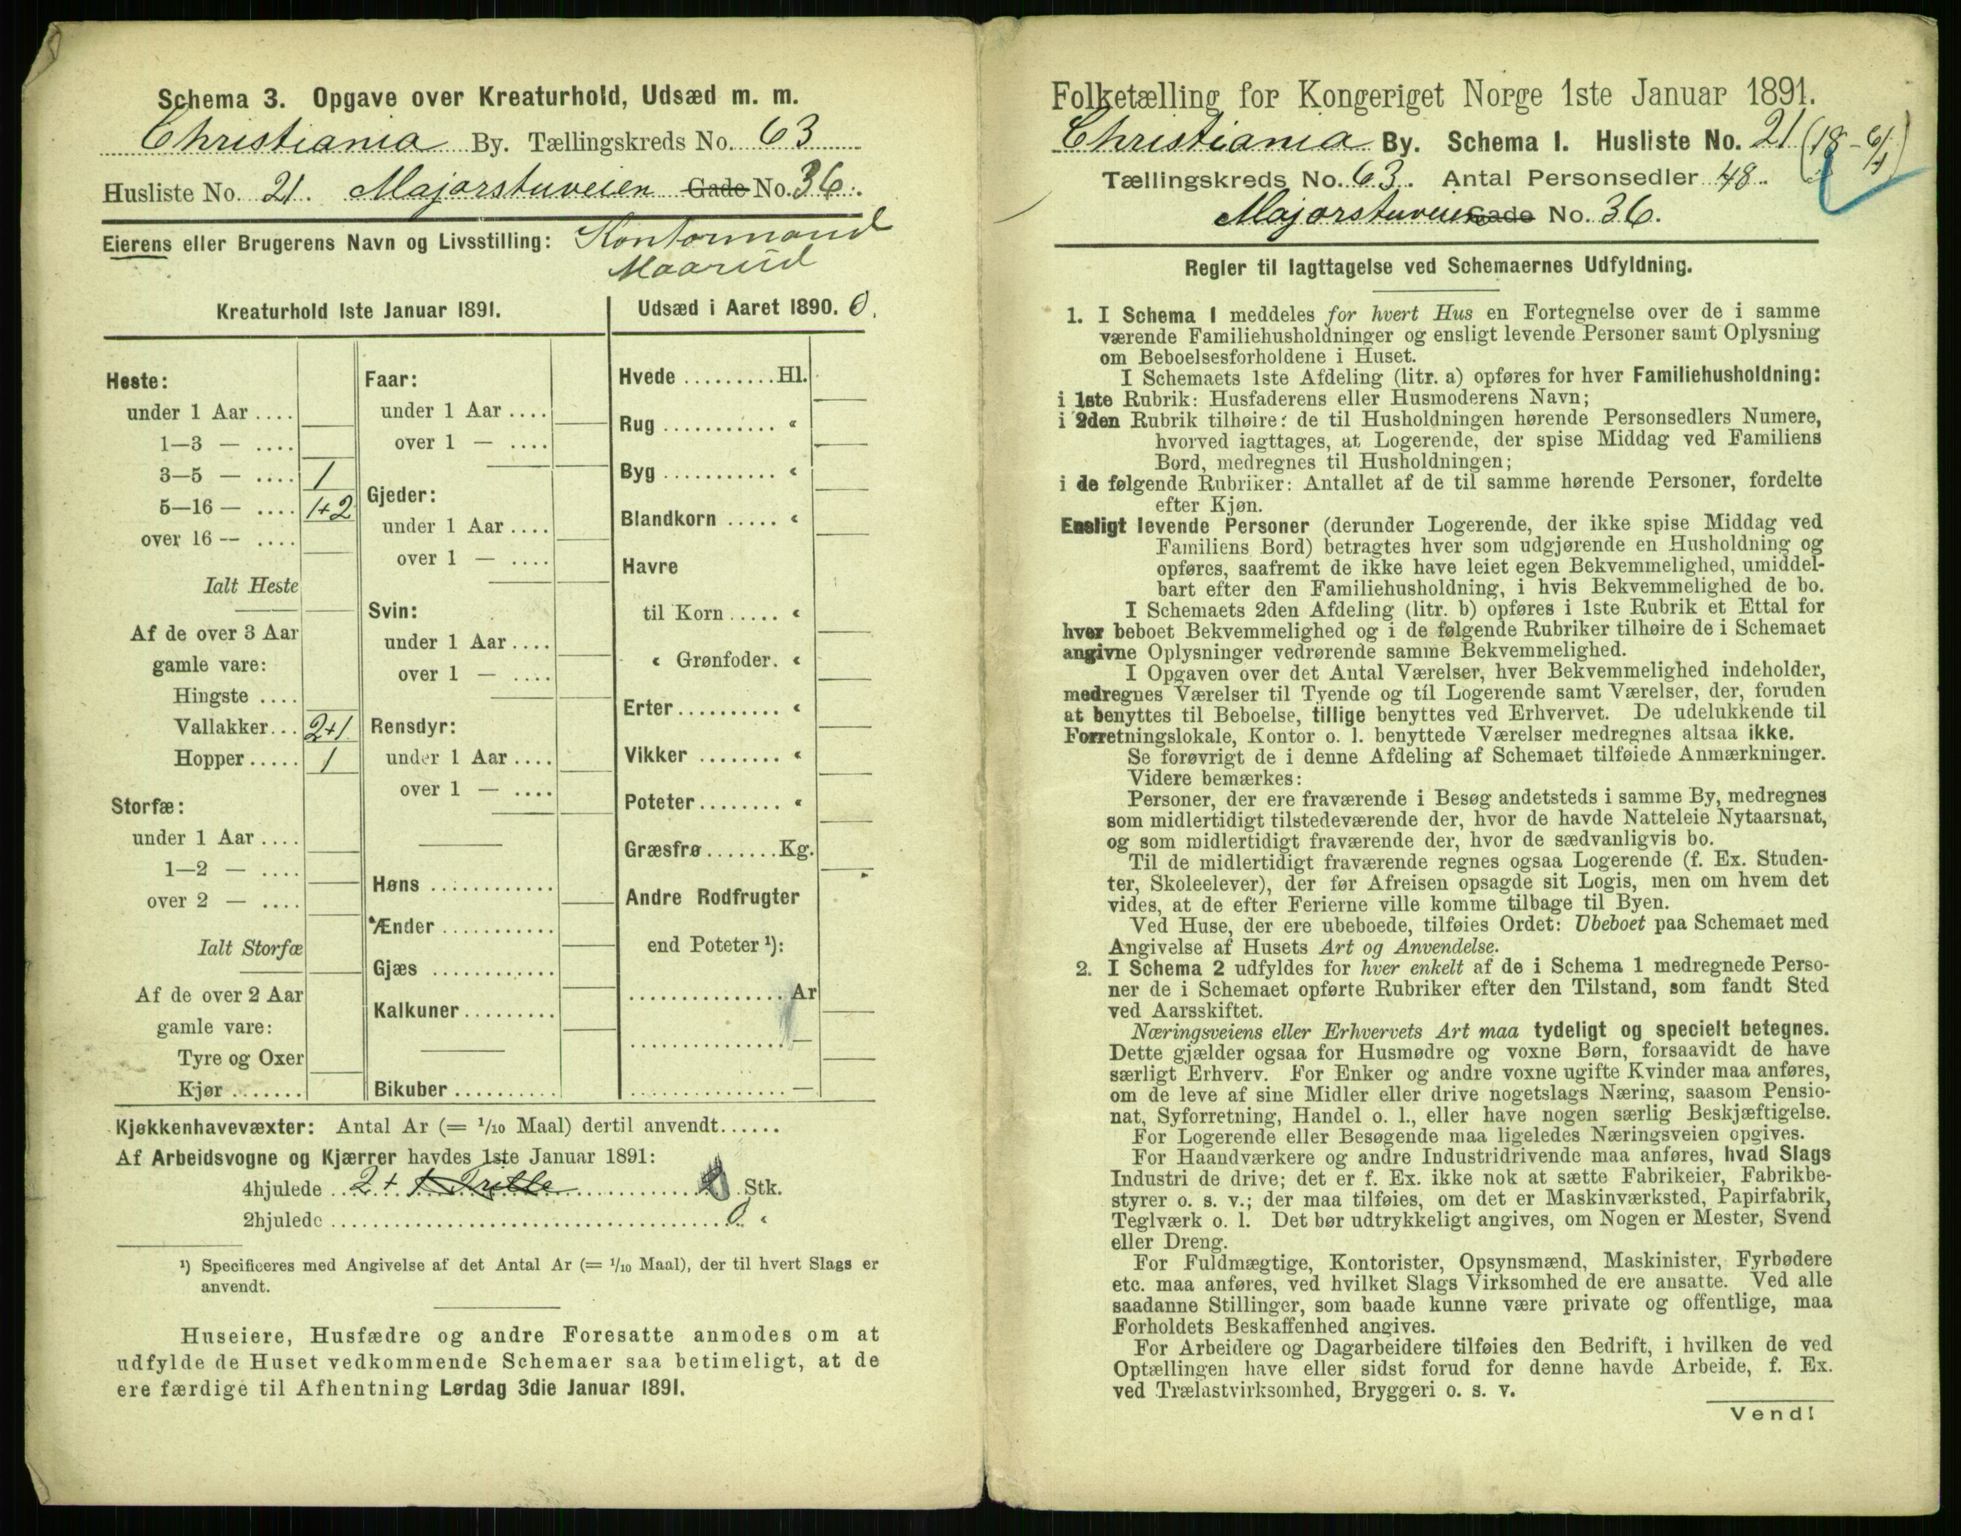 Schema 3. Opgave over Kreaturhold, Udsæd m. m.
Christiania By. Tællingskreds No. 63
Husliste No. 21. Majorstuveien Gade No. 36.
Eierens eller Brugerens Navn og Livsstilling: Kontormand
Maarud
Kreaturhold 1ste Januar 1891.
Heste:
under 1 Aar ....
1—3 — ....
3—5 — .... 1
5—16 — .... 1+2
over 16 — ....
Ialt Heste
Af de over 3 Aar
gamle vare:
Hingste ....
Vallakker... 2+1
Hopper..... 1
Storfæ:
under 1 Aar ....
1—2 — ....
over 2 — ....
Ialt Storfæ
Af de over 2 Aar
gamle vare:
Tyre og Oxer
Kjør .......
Faar:
under 1 Aar ....
over 1 — ....
Gjeder:
under 1 Aar ....
over 1 — ....
Svin:
under 1 Aar ....
over 1 — ....
Rensdyr:
under 1 Aar ....
over 1 — ....
Høns ............
Ænder ...........
Gjæs ............
Kalkuner.........
Bikuber..........
Udsæd i Aaret 1890. 0.
Hvede .........Hl.
Rug ........... «
Byg ........... «
Blandkorn ..... «
Havre
til Korn ..... «
« Grønfoder. «
Erter.......... «
Vikker ........ «
Poteter........ «
Græsfrø .......Kg.
Andre Rodfrugter
end Poteter ¹):
............... Ar
............... —
............... —
Kjøkkenhavevæxter: Antal Ar (= 1/10 Maal) dertil anvendt......
Af Arbeidsvogne og Kjærrer havdes 1ste Januar 1891:
4hjulede .. 2 + 1 Trille ............ Stk.
2hjulede ........................ 0 «
¹) Specificeres med Angivelse af det Antal Ar (= 1/10 Maal), der til hvert Slags er
anvendt.
Huseiere, Husfædre og andre Foresatte anmodes om at
udfylde de Huset vedkommende Schemaer saa betimeligt, at de
ere færdige til Afhentning Lørdag 3die Januar 1891.
Folketælling for Kongeriget Norge 1ste Januar 1891.
Christiania By. Schema I. Husliste No. 21 (18 - 6/1)
Tællingskreds No. 63. Antal Personsedler 48.
Majorstuveien Gade No. 36.
Regler til Iagttagelse ved Schemaernes Udfyldning.
1. I Schema 1 meddeles for hvert Hus en Fortegnelse over de i samme
værende Familiehusholdninger og ensligt levende Personer samt Oplysning
om Beboelsesforholdene i Huset.
I Schemaets 1ste Afdeling (litr. a) opføres for hver Familiehusholdning:
i 1ste Rubrik: Husfaderens eller Husmoderens Navn;
i 2den Rubrik tilhøire: de til Husholdningen hørende Personsedlers Numere,
hvorved iagttages, at Logerende, der spise Middag ved Familiens
Bord, medregnes til Husholdningen;
i de følgende Rubriker: Antallet af de til samme hørende Personer, fordelte
efter Kjøn.
Ensligt levende Personer (derunder Logerende, der ikke spise Middag ved
Familiens Bord) betragtes hver som udgjørende en Husholdning og
opføres, saafremt de ikke have leiet egen Bekvemmelighed, umiddel-
bart efter den Familiehusholdning, i hvis Bekvemmelighed de bo.
I Schemaets 2den Afdeling (litr. b) opføres i 1ste Rubrik et Ettal for
hver beboet Bekvemmelighed og i de følgende Rubriker tilhøire de i Schemaet
angivne Oplysninger vedrørende samme Bekvemmelighed.
I Opgaven over det Antal Værelser, hver Bekvemmelighed indeholder,
medregnes Værelser til Tyende og til Logerende samt Værelser, der, foruden
at benyttes til Beboelse, tillige benyttes ved Erhvervet. De udelukkende til
Forretningslokale, Kontor o. l. benyttede Værelser medregnes altsaa ikke.
Se forøvrigt de i denne Afdeling af Schemaet tilføiede Anmærkninger.
Videre bemærkes:
Personer, der ere fraværende i Besøg andetsteds i samme By, medregnes
som midlertidigt tilstedeværende der, hvor de havde Natteleie Nytaarsnat,
og som midlertidigt fraværende der, hvor de sædvanligvis bo.
Til de midlertidigt fraværende regnes ogsaa Logerende (f. Ex. Studen-
ter, Skoleelever), der før Afreisen opsagde sit Logis, men om hvem det
vides, at de efter Ferierne ville komme tilbage til Byen.
Ved Huse, der ere ubeboede, tilføies Ordet: Ubeboet paa Schemaet med
Angivelse af Husets Art og Anvendelse.
2. I Schema 2 udfyldes for hver enkelt af de i Schema 1 medregnede Perso-
ner de i Schemaet opførte Rubriker efter den Tilstand, som fandt Sted
ved Aarsskiftet.
Næringsveiens eller Erhvervets Art maa tydeligt og specielt betegnes.
Dette gjælder ogsaa for Husmødre og voxne Børn, forsaavidt de have
særligt Erhverv. For Enker og andre voxne ugifte Kvinder maa anføres,
om de leve af sine Midler eller drive nogetslags Næring, saasom Pensio-
nat, Syforretning, Handel o. l., eller have nogen særlig Beskjæftigelse.
For Logerende eller Besøgende maa ligeledes Næringsveien opgives.
For Haandværkere og andre Industridrivende maa anføres, hvad Slags
Industri de drive; det er f. Ex. ikke nok at sætte Fabrikeier, Fabrikbe-
styrer o. s. v.; der maa tilføies, om det er Maskinværksted, Papirfabrik,
Teglværk o. l. Det bør udtrykkeligt angives, om Nogen er Mester, Svend
eller Dreng.
For Fuldmægtige, Kontorister, Opsynsmænd, Maskinister, Fyrbødere
etc. maa anføres, ved hvilket Slags Virksomhed de ere ansatte. Ved alle
saadanne Stillinger, som baade kunne være private og offentlige, maa
Forholdets Beskaffenhed angives.
For Arbeidere og Dagarbeidere tilføies den Bedrift, i hvilken de ved
Optællingen have eller sidst forud for denne havde Arbeide, f. Ex.
ved Trælastvirksomhed, Bryggeri o. s. v.
Vend!